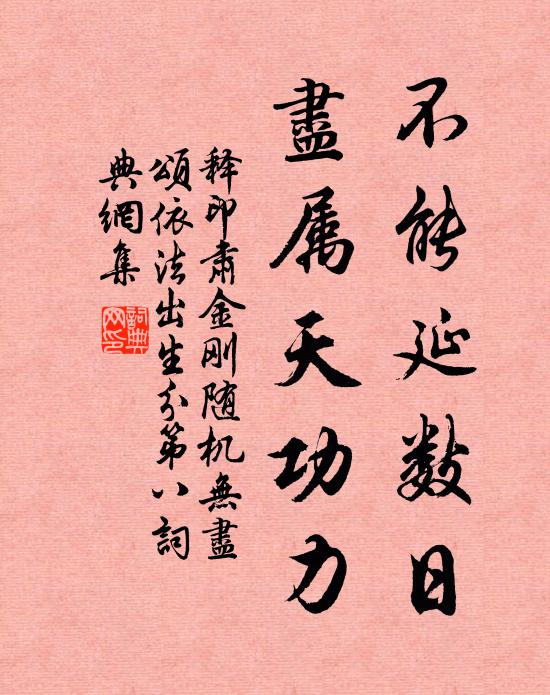 不能延数日
盡属天功力
释印肃金刚随机無盡
頌依法出生分第八詞
典網集
詞典网印